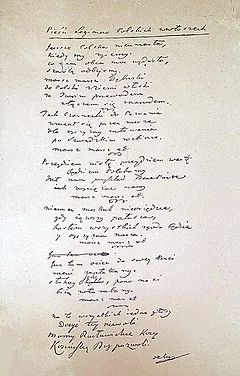 Pieśń Legionów Polskich we Włoszech
Jeszcze Polska nie umarła,
kiedy my żyjemy
co nam obca moc wydarła,
szablą odbijemy
marsz marsz Dąbrowski
do Polski z ziemi włoski
za Twoim przewodem
złączem się z narodem.
Jak Czarnecki do Poznania
wracał się przez morze
dla ojczyzny ratowania
po szwedzkim rozbiorze,
marsz marsz et
Przejdziem Wisłę przejdziem Wartę
będziem Polakami
dał nam przykład Bonaparte
jak zwyciężać mamy
marsz marsz et
niemiec moskal nie osiędzie,
gdy jąwszy pałasza,
hasłem wszystkich zgoda będzie
i ojczyzna nasza
marsz marsz et
już tam ociec do swej Basi
mówi zapłakany
słuchaj jeno, pono nasi
biją w tarabany
marsz marsz et
na to wszystkich jedne głosy
Dosyć tej niewoli
mamy Racławickie Kosy
Kościuszkę Bóg pozwoli.